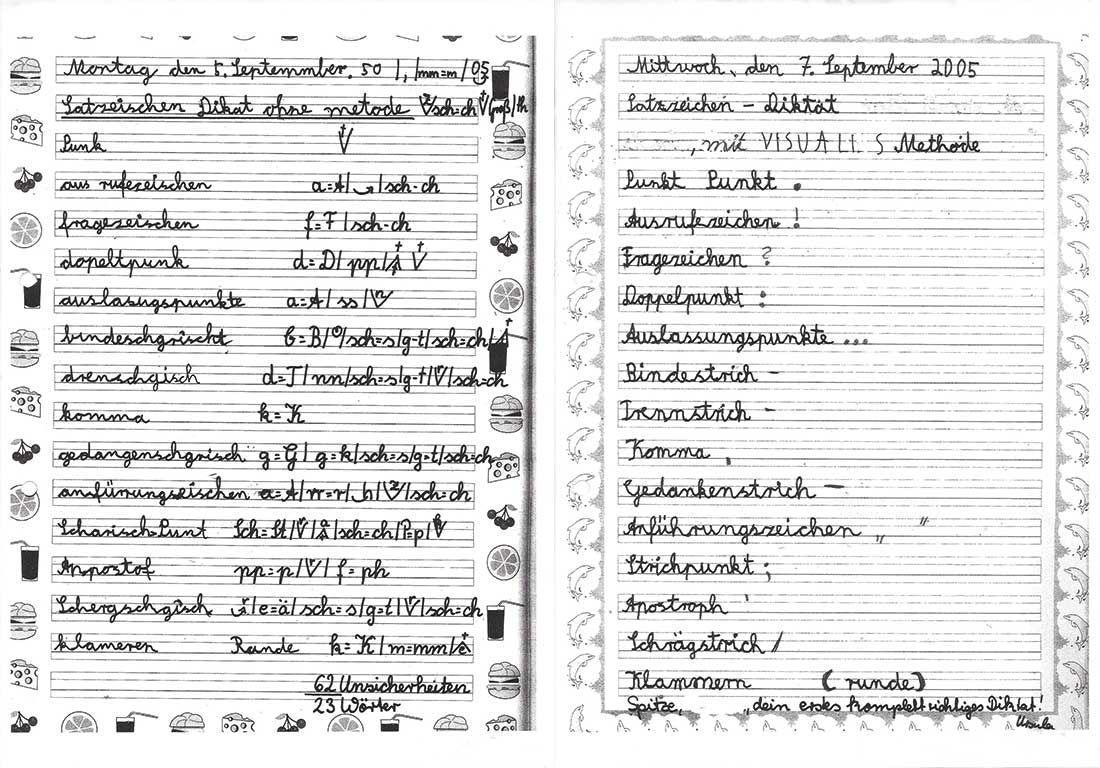 Montag den 5. Septemmber. 50 |, |mm=m / 05
Satzeischen Dikat ohne metode z/sch=ch Groß/th
Punk
aus rufezeischen a=A| |sch-ch
fragezeischen f=F |sch-ch
dopeltpunk d=D| pp|
auslasugspunkte a=A | ss |
bindeschgrischt b=B/ /sch=s/g-t/sch=ch/
drenschgisch d=T | nn/sch=s/g-t/ /sch=ch
komma k=K
gedangenschgrisch g=G | g=k/sch=s/g=t/sch=ch
anfürrungszeischen a=A/rr=r/ h/z/sch=ch
Scharisch Punt Sch=St/ / /sch=ch/P=p/
Anpostof pp=p/ / f=ph
Schergschgisch /e=ä/sch=s/g=t/ /sch=ch
klameren Runde k=K/m=mm/
62 Unsicherheiten
23 Wörter
Mittwoch, den 7. September 2005
Satzzeichen – Diktat
, mit VISUALIS Methode
Punkt Punkt .
Ausrufezeichen !
Fragezeichen ?
Doppelpunkt :
Auslassungspunkte ...
Bindestrich -
Trennstrich -
Komma ,
Gedankenstrich –
Anführungszeichen „ “
Strichpunkt ;
Apostroph '
Schrägstrich /
Klammern (runde)
Spitze, dein erstes komplett richtiges Diktat!
Ursula